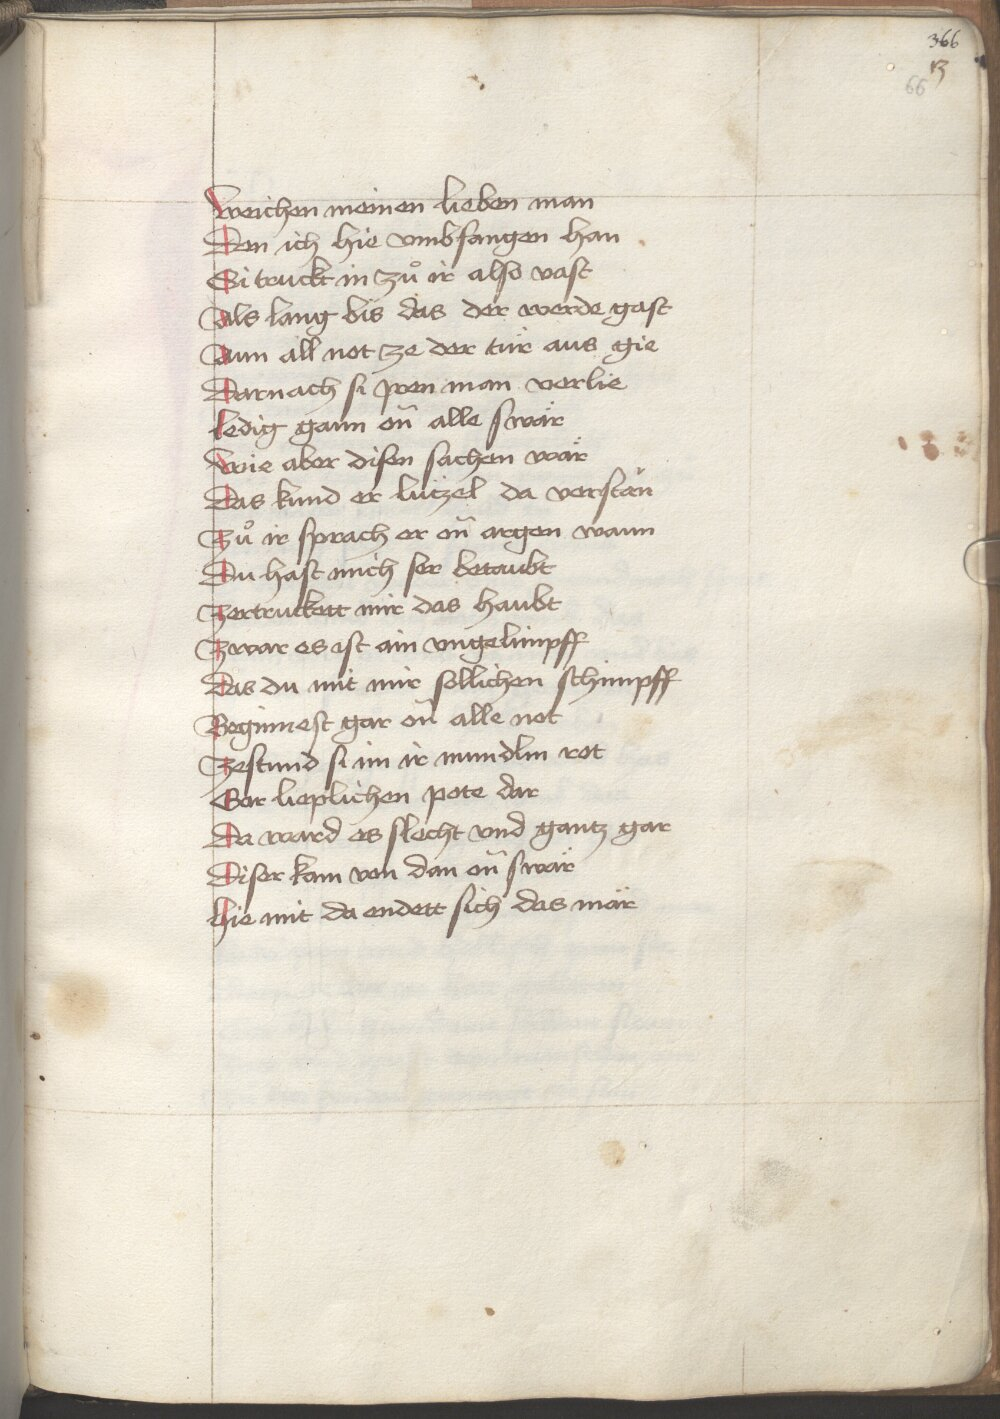 366
13
66
Weichen meinen lieben man
Den ich hie vmbfangen han
Si truckt in zuͦ ir also vast
Als lang bis das der werde gast
Aun all not ze der tür aus gie
Darnach si jren man verlie
Ledig gann on̄ alle swär
Wie aber disen sachen wär
Das kund er lützel da verstan̄
Zuͦ ir sprach er on̄ argen wann
Du hast mich ser betaubt
Zertruckett mir das haubt
Zwar es ist ain vngelimpff
Das du mit mir sollichen schimpff
Beginnest gar on̄ alle not
Zestund si im ir mundlin rot
Gar lieplichen pote dar
Da ward es slecht vnd gantz gar
Diser kam von dan on̄ swär
Hie mit da endett sich das mär